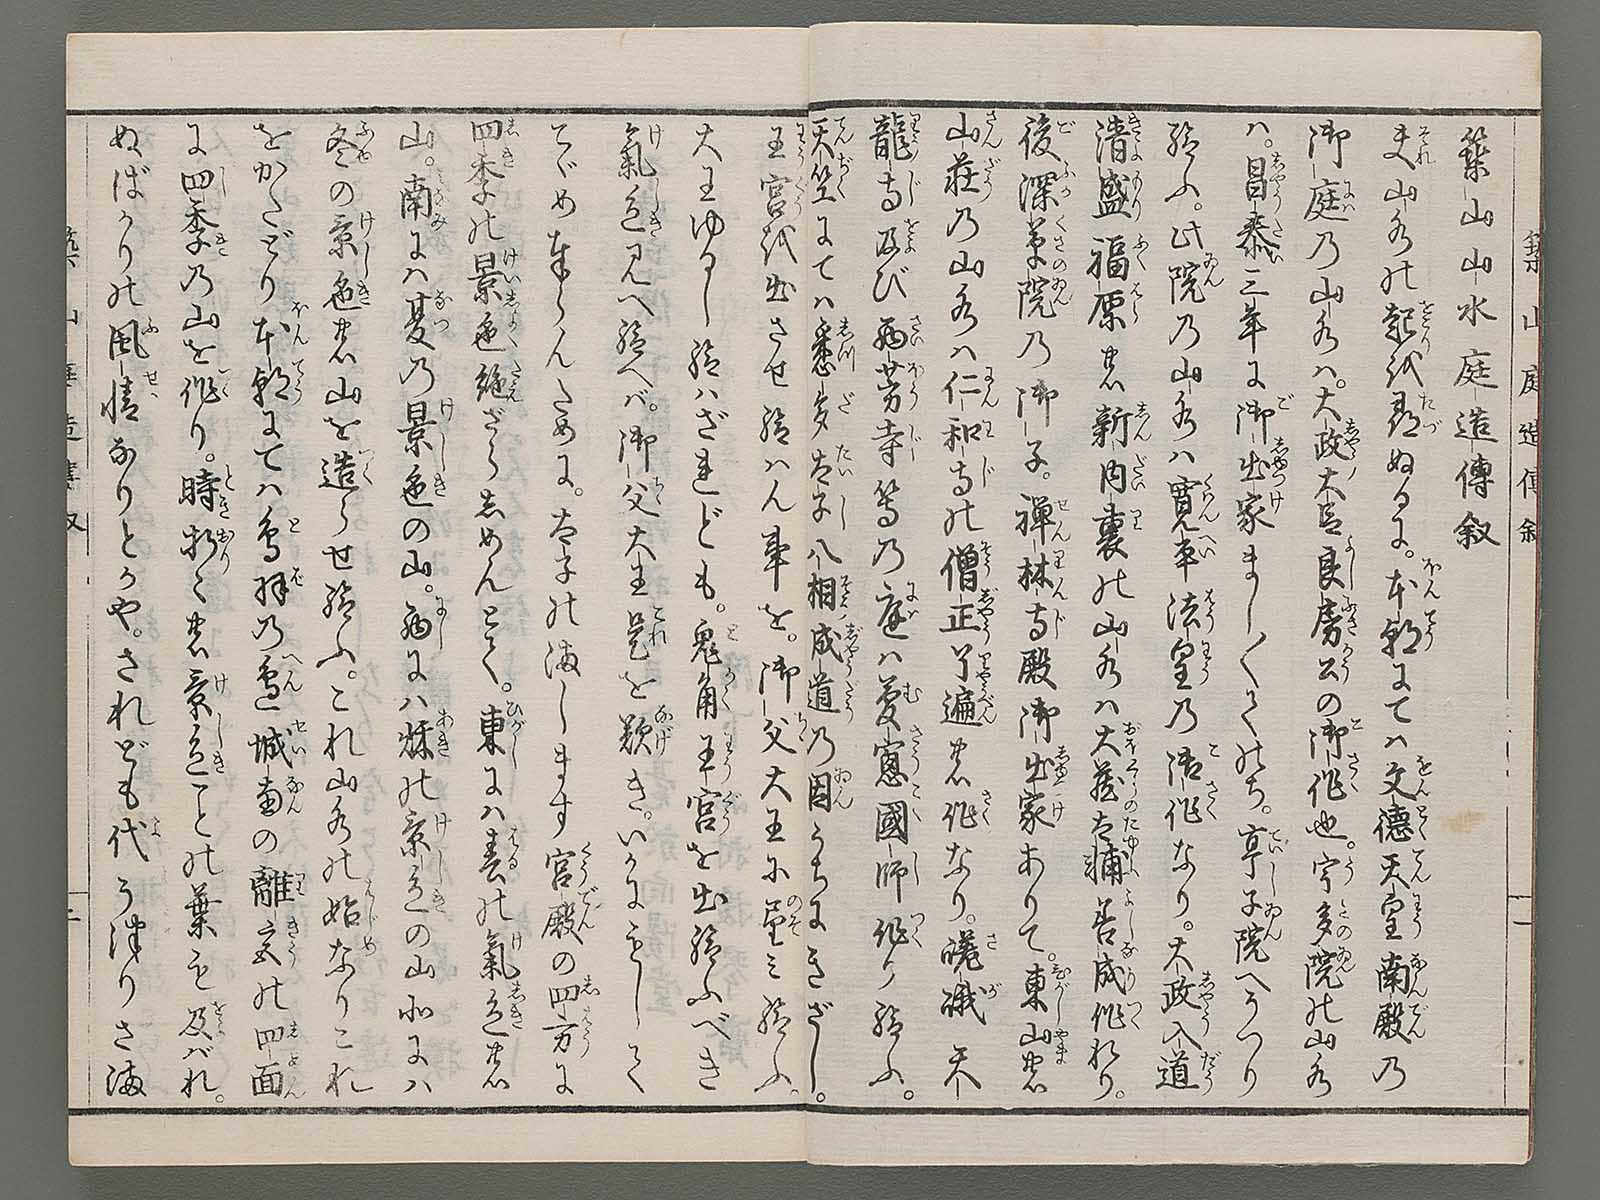 築山山水庭造傳叙
夫山水の起を尋ぬるに。本朝にては文德天皇南殿の
御庭の山水は。大政大臣良房公の御作也。宇多院の山水
は。昌泰三年に御出家まし〱てのち。亭子院へうつり
給ふ。此院の山水は寛平法皇の御作なり。大政入道
清盛福原の新内裏の山水は大藏太輔善成作れり。
後深草院の御子。禪林寺殿御出家ありて。東山の
山荘の山水は仁和寺の僧正了遍の作なり。嵯峨天
龍寺及び西芳寺等の庭は夢窓國師作り給ふ。
天竺にては悉多太子八相成道の因うちにきざし。
王宮を出させ給はん事を。御父大王に望み給ふ。
大王ゆるし給はざれども。鬼角王宮を出給ふべき
氣色見へ給へば。御父大王是を歎き。いかにもして
とゞめ奉らんために。太子の海します宮殿の四方に
四季の景色絶ざらしめんとて。東には春の氣色の
山。南には夏の景色の山。西には秋の景色の山北には
冬の景色の山を造らせ給ふ。これ山水の始なりこれ
をかたどり本朝にては鳥羽の邊城南の離宮の四面
に四季の山を作り。時折〻の景色ことの葉も及ばれ
ぬばかりの風情なりとかや。されども代うつりさ海
築山庭造傳叙